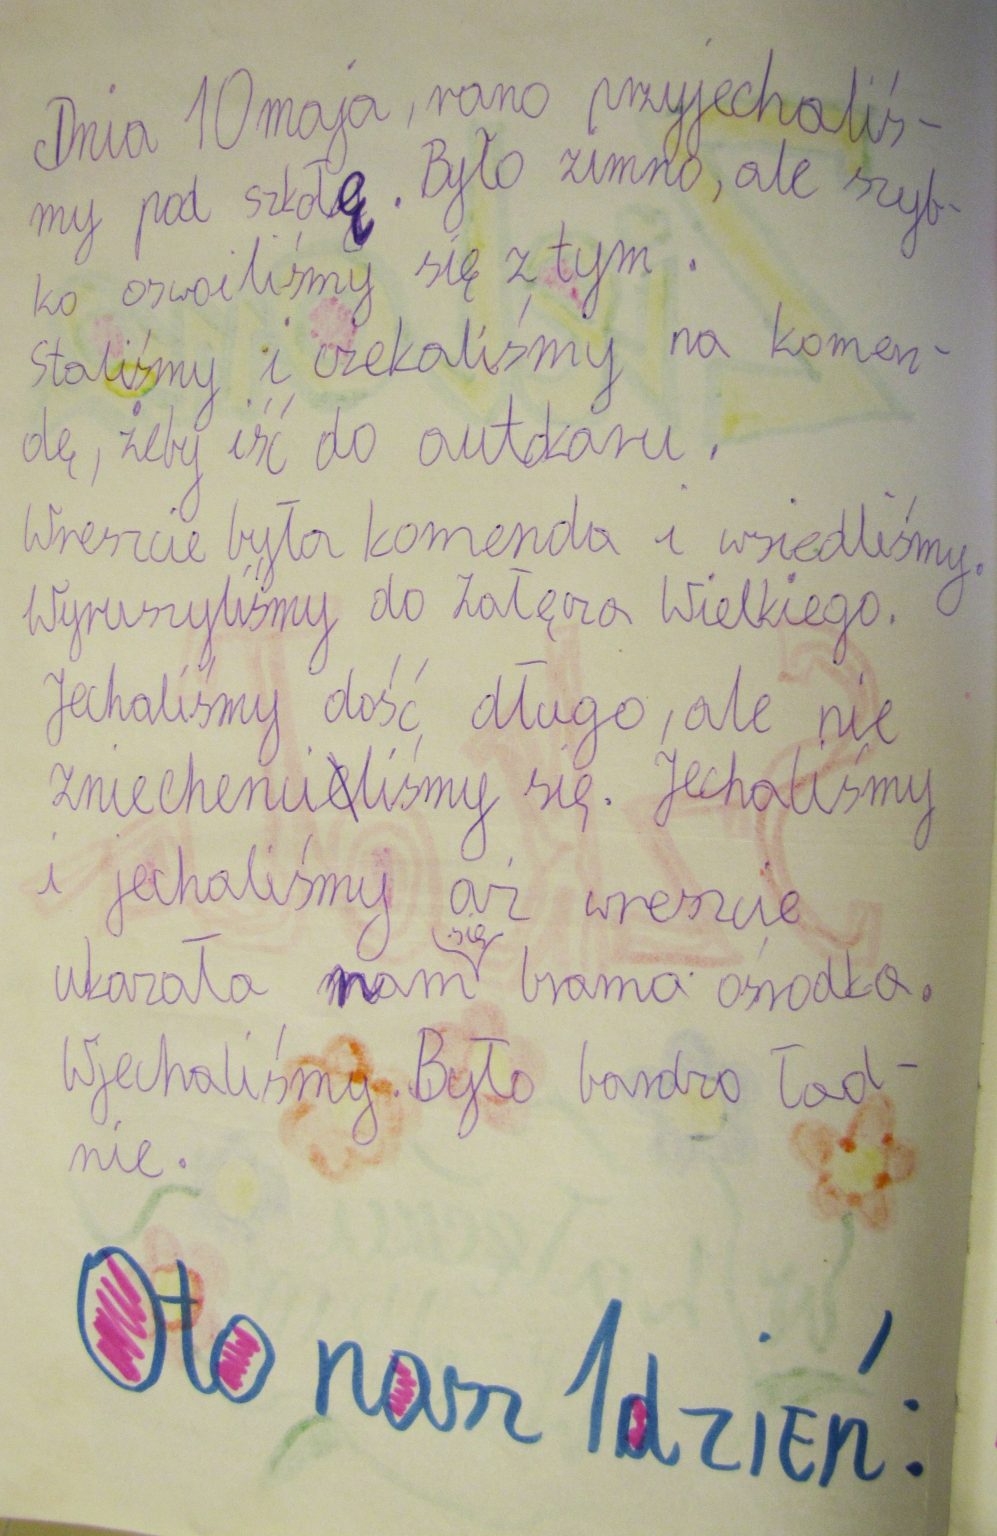 Dnia 10 maja, rano przyjechaliś-
my pod szkołę. Było zimno, ale szyb-
ko oswoiliśmy się z tym.
Staliśmy i czekaliśmy na komen-
dę, żeby iść do autokaru.
Wreszcie była komenda i wsiedliśmy.
Wyruszyliśmy do Załęcza Wielkiego.
Jechaliśmy dość długo, ale nie
zniechenciliśmy się. Jechaliśmy
i jechaliśmy aż wreszcie
się
ukazała nam brama ośrodka.
Wjechaliśmy. Było bardzo ład-
nie.
Oto nasz 1 dzień: